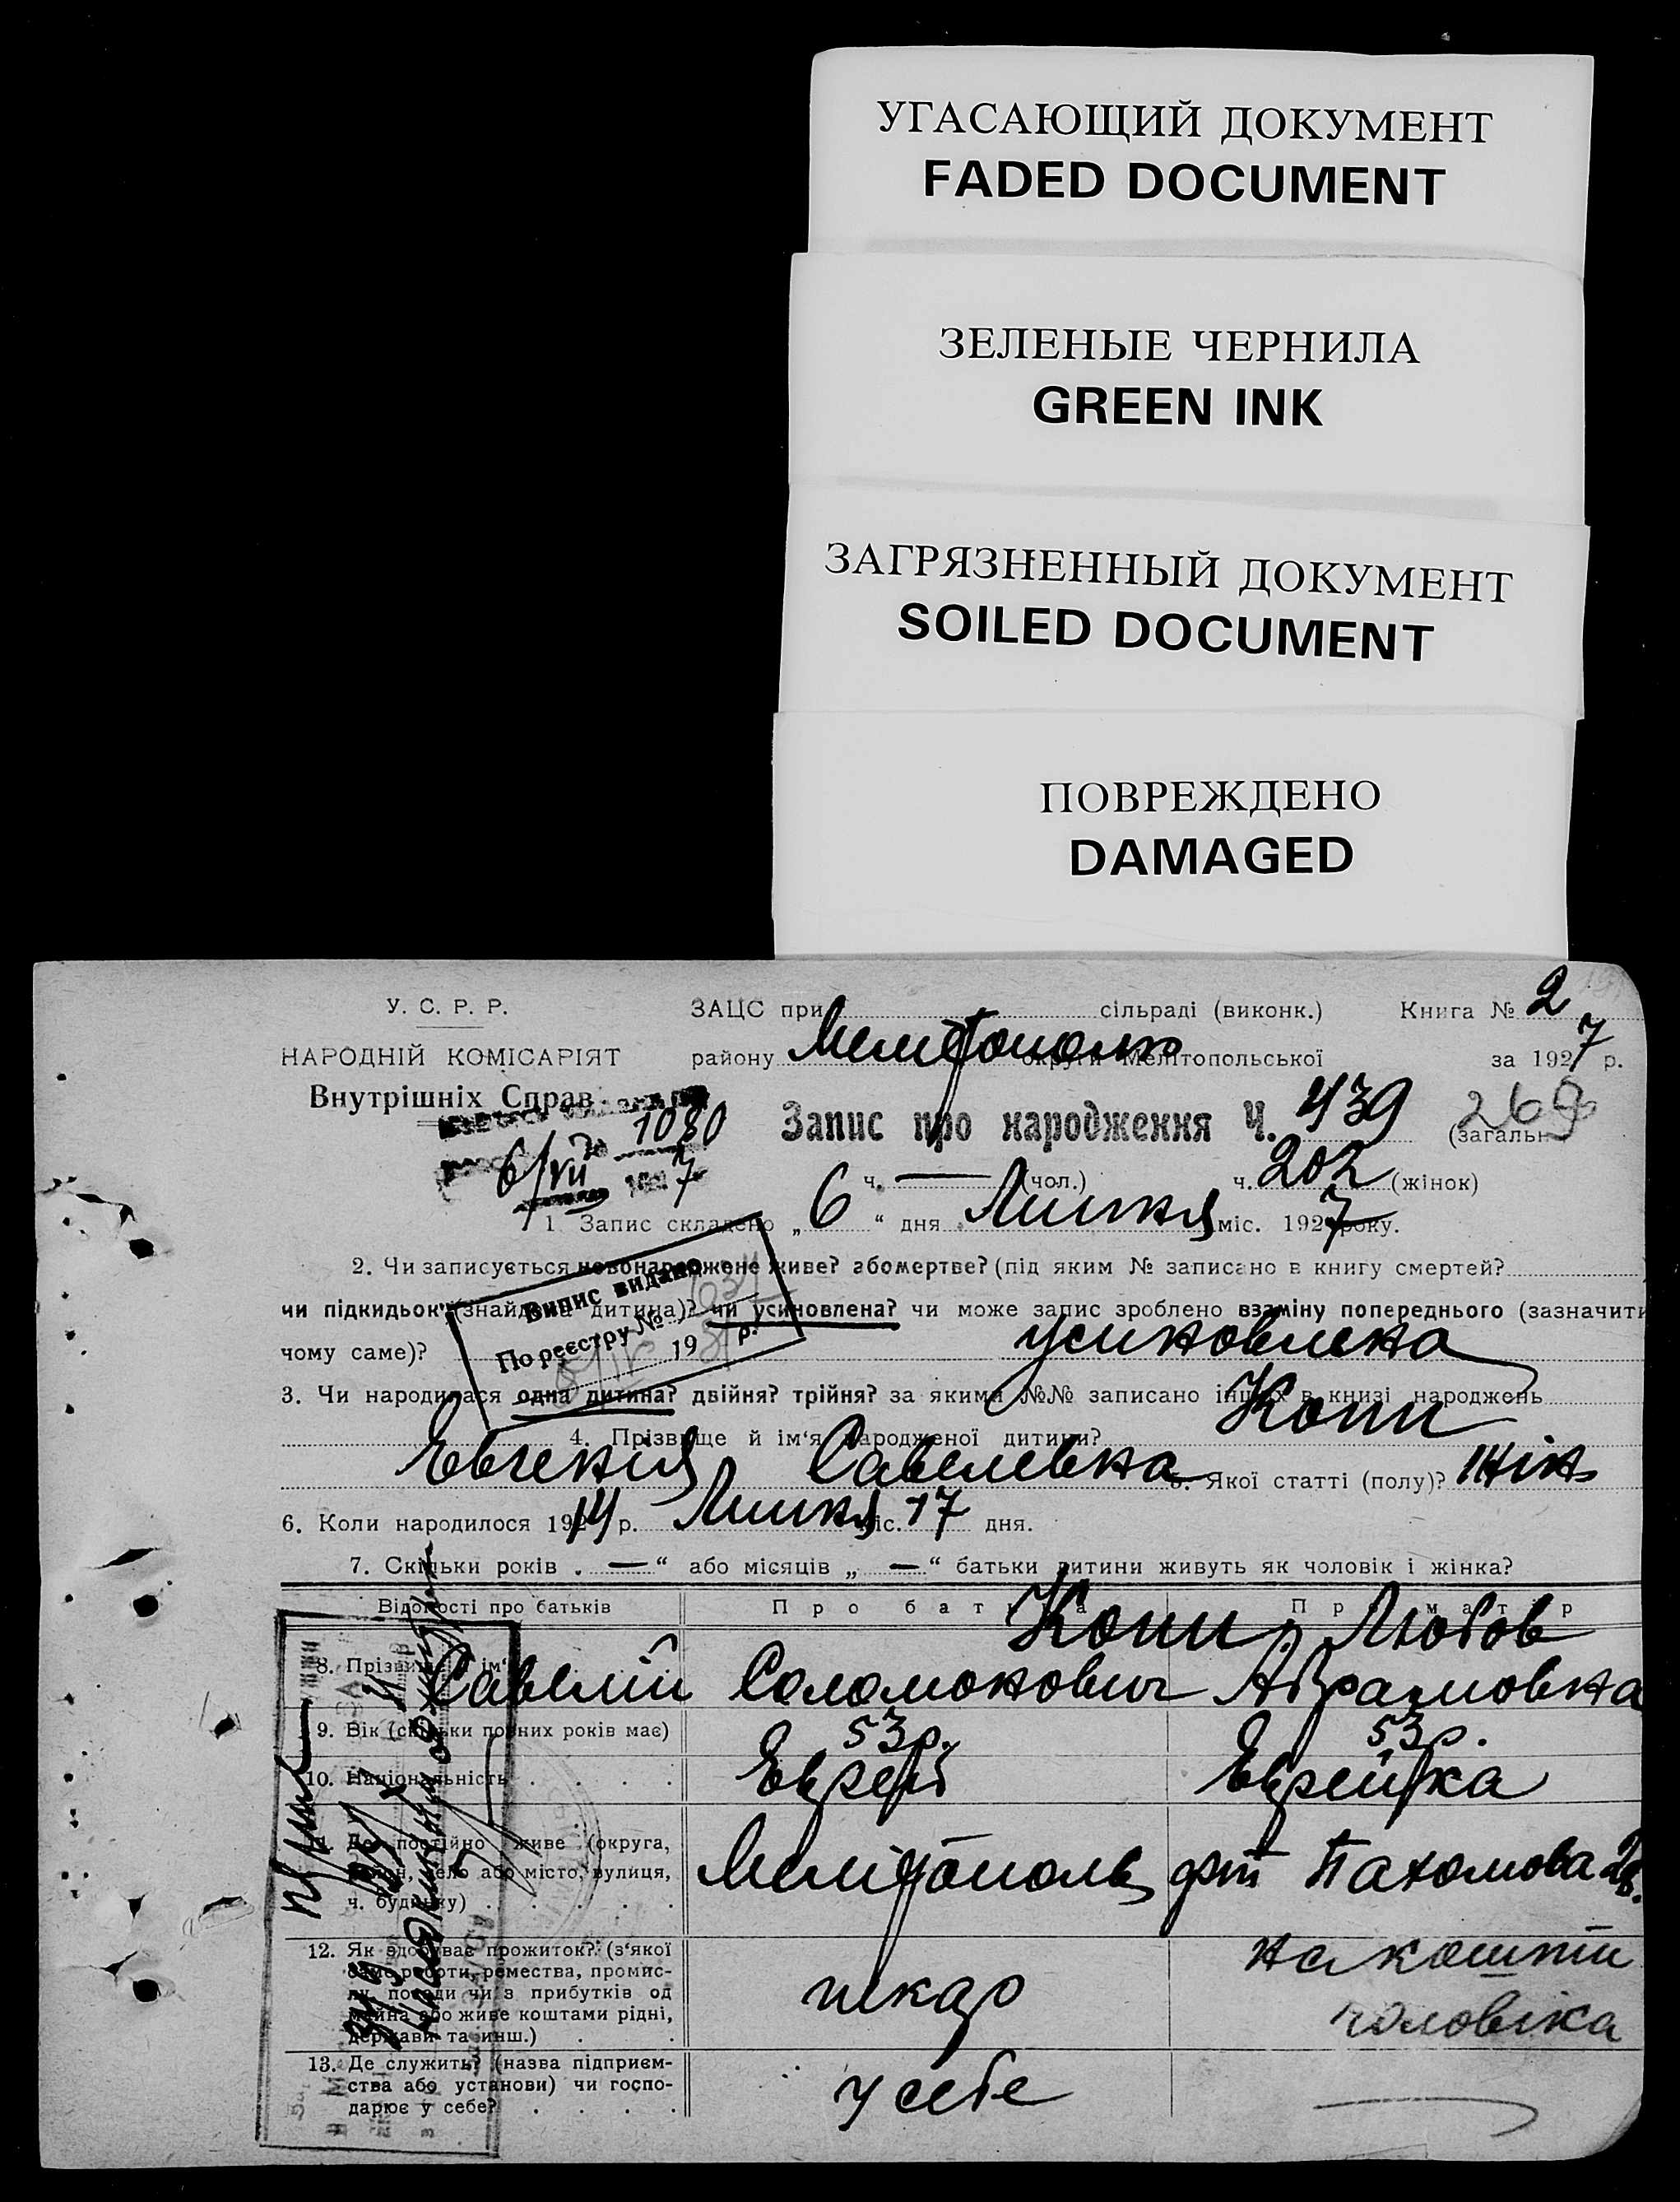 УГАСАЮЩИЙ ДОКУМЕНТ
FADED DOCUMENT
ЗЕЛЕНЫЕ ЧЕРНИЛА
GREEN INK
ЗАГРЯЗНЕННЫЙ ДОКУМЕНТ
SOILED DOCUMENT
ПОВРЕЖДЕНО
DAMAGED
У. С. Р. Р.
НАРОДНІЙ КОМІСАРІЯТ
Внутрішніх Справ
ЗАЦС при сільраді (виконк.) Книга № 2
району округи Мелітопольської за 1927 р.
1080
6/VII 7
Запис про народження Ч. 439 (загальн
269
ч. — (чол.) ч. 202 (жінок)
1. Запис складено „ 6 “ дня Липня міс. 1927 року.
2. Чи записується новонароджене живе? або мертве? (під яким № записано в книгу смертей?
чи підкидьок (знайдена дитина)? чи усиновлена? чи може запис зроблено взаміну попереднього (зазначити
чому саме)? усиновлена
Випис видано
По реєстру №
19 р.
3. Чи народилася одна дитина? двійня? трійня? за якими №№ записано інших в книзі народжень
4. Прізвище й ім‘я народженої дитини? Копп
Евгения Савелевна 5. Якої статті (полу)? жін
6. Коли народилося 1914 р. Липня міс. 17 дня.
7. Скільки років „ — “ або місяців „ — “ батьки дитини живуть як чоловік і жінка?
Відомості про батьків Про батька Про матір
Копп Любов
8. Прізвище ім‘я Савелій Соломонович Абрамовна
9. Вік (скільки повних років має) 53 р. 53 р.
10. Національність Еврей Еврейка
11. Де постійно живе (округа,
район, село або місто, вулиця,
ч. будинку)
Мелітополь Пахомова
12. Як здобуває прожиток? (з‘якої
саме роботи, ремества, промис-
лу, посади чи з прибутків од
майна або живе коштами рідні,
держави та инш.)
пекар
на кошти
чоловіка
13. Де служить? (назва підприєм-
ства або установи) чи госпо-
дарює у себе?
у себе